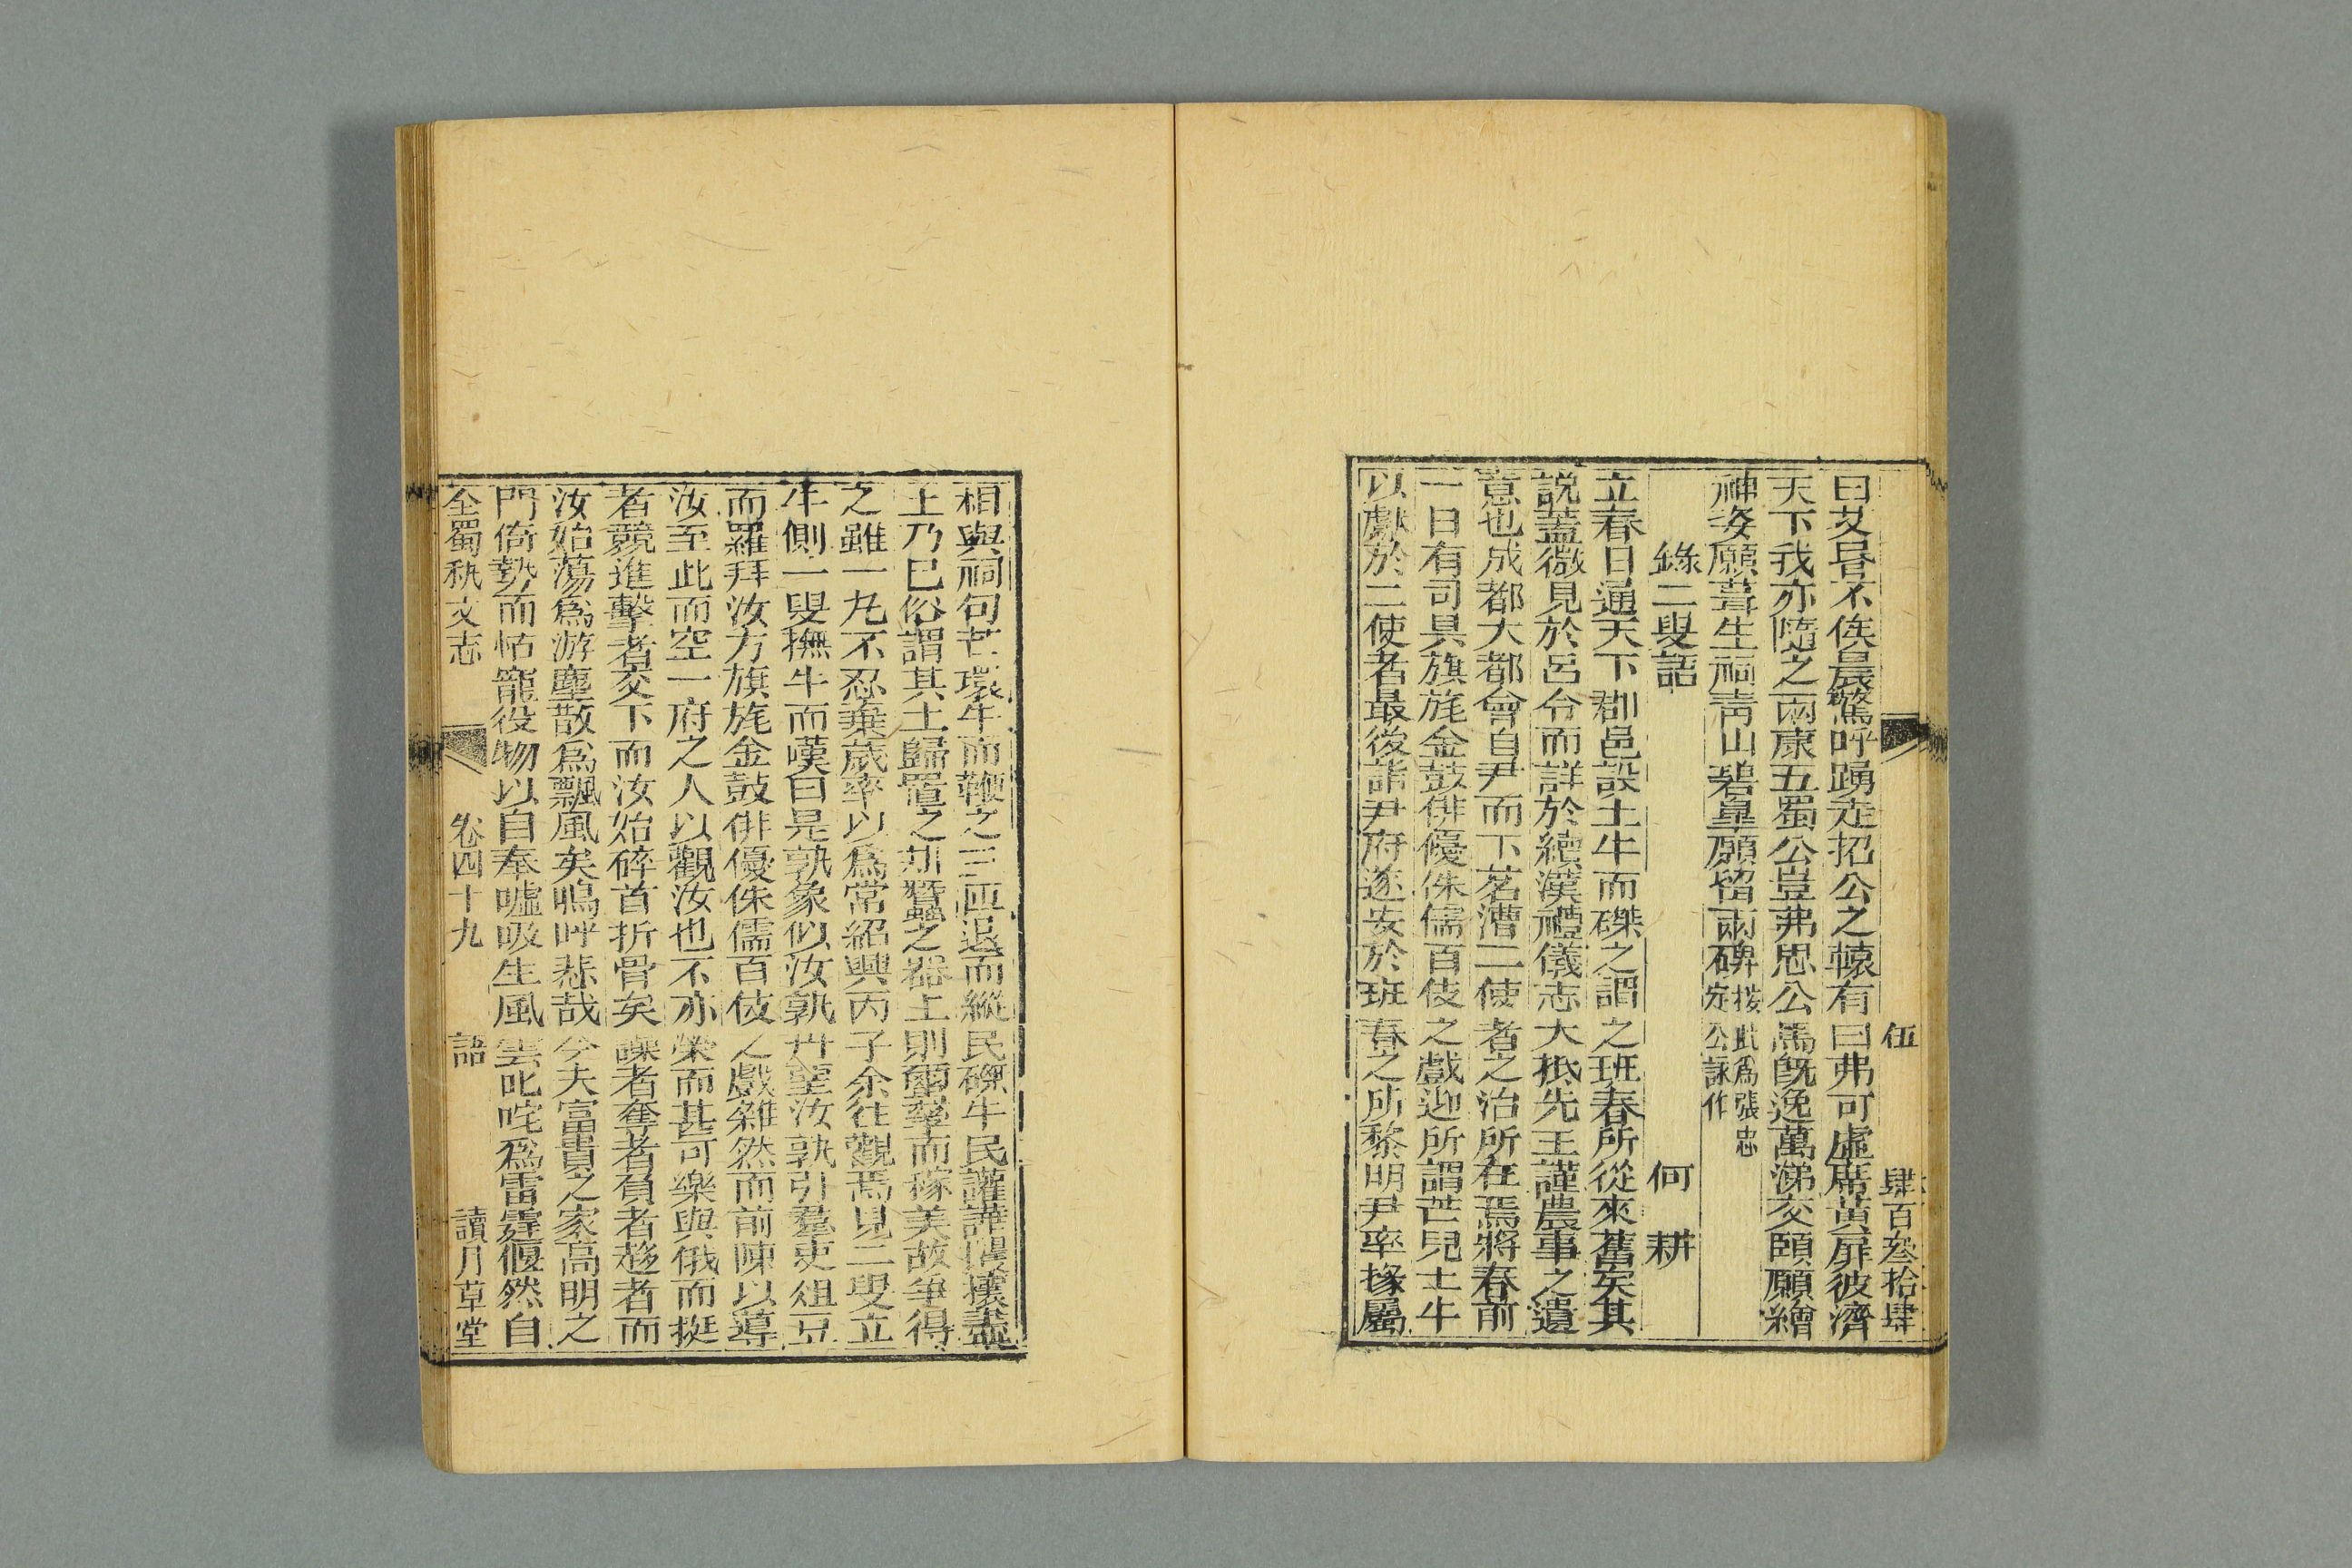 伍 肆百叁拾肆
曰艾昏不俟晨驚呼踴走招公之轅有曰弗可虛席黃扉彼濟
天下我亦隨之兩康五蜀公豈弗思公馬旣逸萬涕交頤願繪
神姿願葺生祠靑山碧皐願留兩碑
按此爲張忠
定公詠作
錄二叟語 何耕
立春日通天下郡邑設土牛而磔之謂之班春所從來舊矣其
說蓋微見於呂令而詳於續漢禮儀志大抵先王謹農事之遺
意也成都大都會自尹而下茗漕二使者之治所在焉將春前
一日有司具旗旄金鼓俳優侏儒百伎之戲迎所謂芒兒土牛
以獻於二使者最後詣尹府遂安於班春之所黎明尹率掾屬
相與祠句芒環牛而鞭之三匝退而縱民磔牛民讙譁攫攘盡
土乃已俗謂其土歸置之耕蠶之器上則蠶孳而稼美故爭得
之雖一丸不忍棄歲率以爲常紹興丙子余往觀焉見二叟立
牛側一叟撫牛而嘆曰是孰象似汝孰丹堊汝孰引羣吏俎豆
而羅拜汝方旗旄金鼓俳優侏儒百伎之戲雜然而前陳以導
汝至此而空一府之人以觀汝也不亦榮而甚可樂與俄而挺
者競進擊者交下而汝始碎首折骨矣譟者奪者負者趍者而
汝始蕩爲游塵散爲飄風矣嗚呼悲哉今夫富貴之家高明之
門倚埶而怙寵役物以自奉噓吸生風雲叱咤爲雷霆偃然自
全蜀秇文志 卷四十九 語 讀月草堂